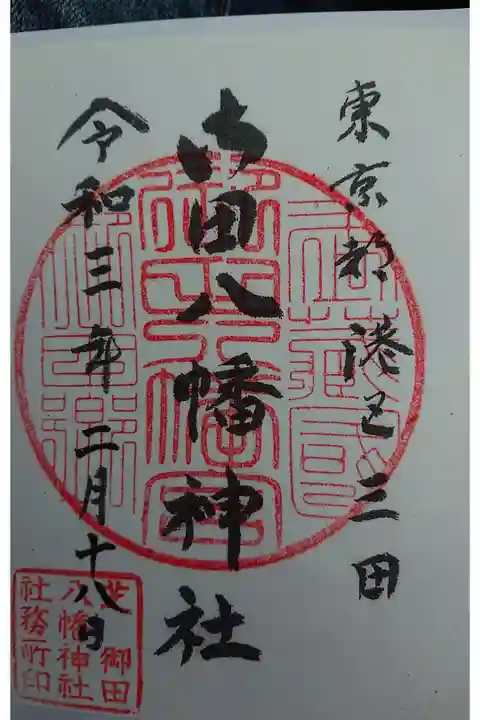 東京都港区三田
御田八幡神社
令和三年二月十八日
芝御田
八幡神社
社務所印